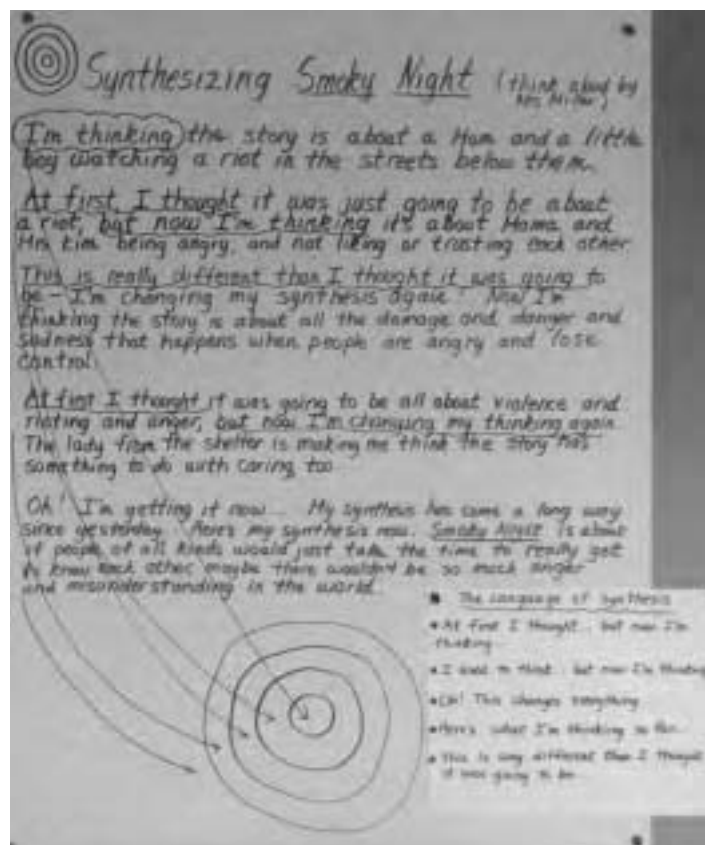 Synthesizing Smoky Night (think aloud by
Mrs Miller)
I'm thinking the story is about a Mom and a little
boy watching a riot in the streets below them.
At first, I thought it was just going to be about
a riot, but now I'm thinking it's about Mama and
Mrs Kim being angry, and not liking or trusting each other.
This is really different than I thought it was going to
be - I'm changing my synthesis again! Now I'm
thinking the story is about all the damage and danger and
sadness that happens when people are angry and lose
control.
At first I thought it was going to be all about violence and
rioting and anger, but now I'm changing my thinking again.
The lady from the shelter is making me think the story has
something to do with caring too.
Oh! I'm getting it now... My synthesis has come a long way
since yesterday. Here's my synthesis now. Smoky Night is about
if people of all kinds would just take the time to really get
to know each other maybe there wouldn't be so much anger
and misunderstanding in the world.
The Language of Synthesis
• At first I thought... but now I'm
thinking
• I used to think... but now I'm thinking
• Oh! This changes everything
• Here's what I'm thinking so far...
• This is very different than I thought
it was going to be